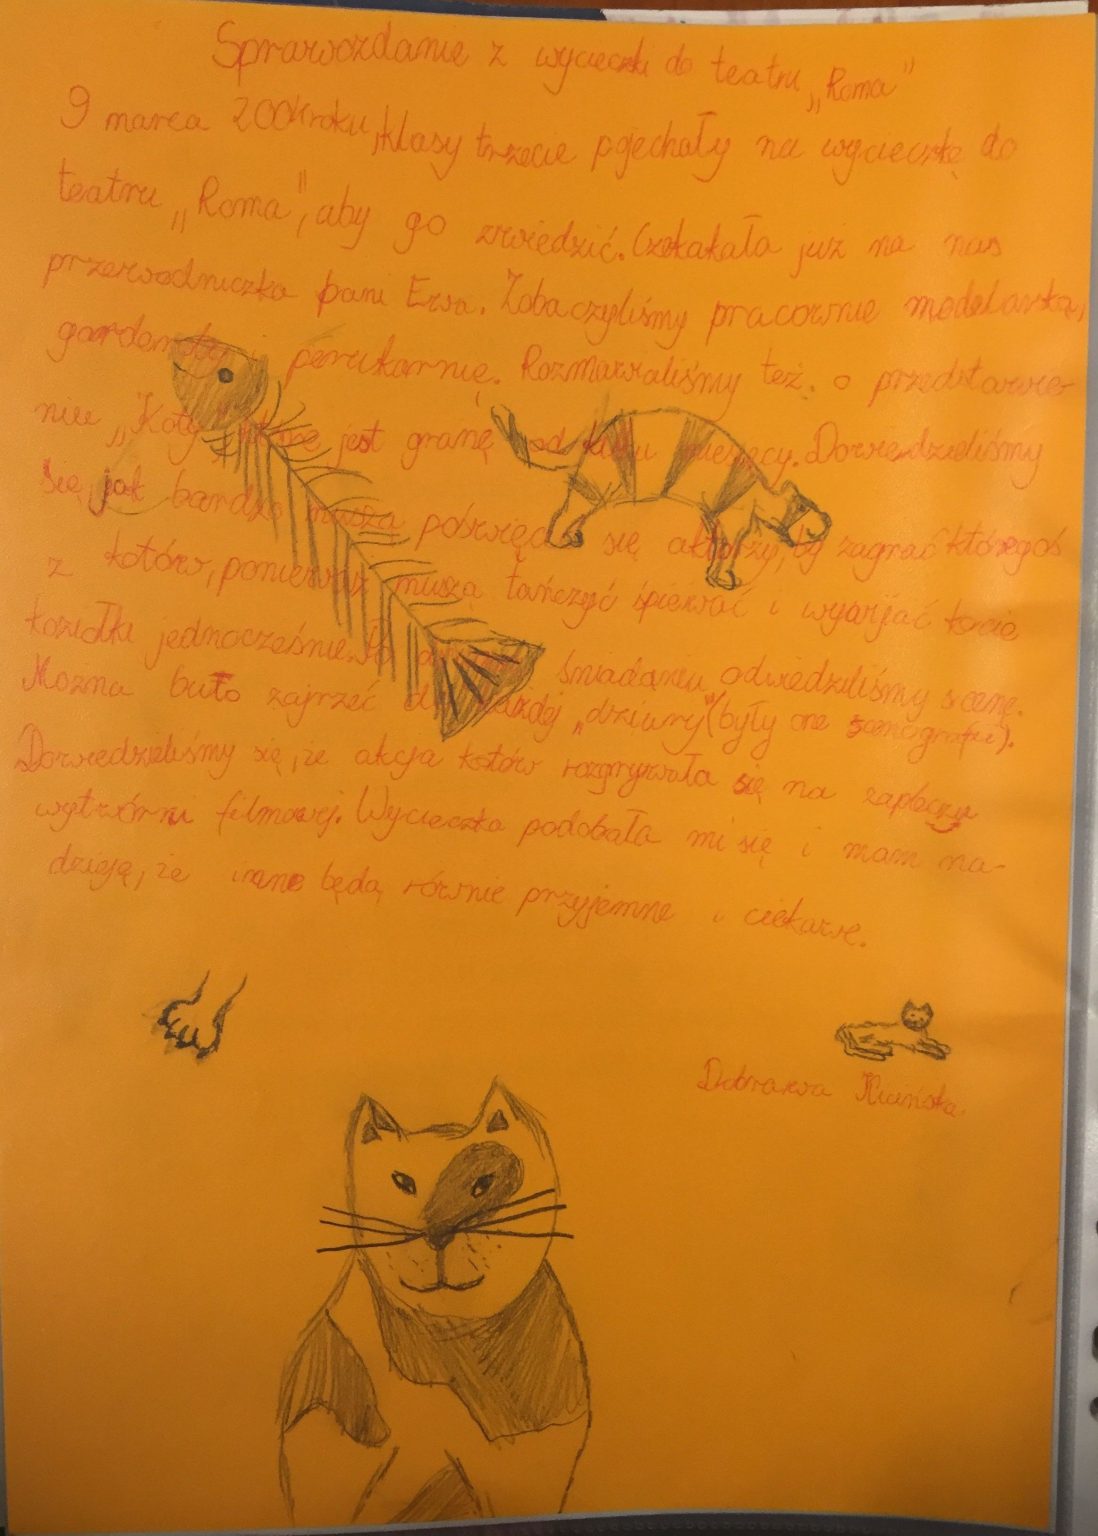 Sprawozdanie z wycieczki do teatru „Roma"
9 marca 2004 roku, klasy trzecie pojechały na wycieczkę do
teatru „Roma", aby go zwiedzić. Czekakała już na nas
przewodniczka pani Ewa. Zobaczyliśmy pracownie modelarską,
garderobę i perukarnię. Rozmawialiśmy też o przedstawie-
niu „Koty", które jest granę od kilku miesięcy. Dowiedzieliśmy
się, jak bardzo muszą poświęcać się aktorzy, by zagrać któregoś
z kotów, ponieważ muszą tańczyć śpiewać i wywijać kocie
koziołki jednocześnie. Po śniadaniu odwiedziliśmy scenę.
Można było zajrzeć do każdej „dziury" (były one scenografii).
Dowiedzieliśmy się, że akcja kotów rozgrywała się na zapleczu
wytwórni filmowej. Wycieczka podobała mi się i mam na-
dzieję, że inne będą równie przyjemne i ciekawe.
Dobrawa